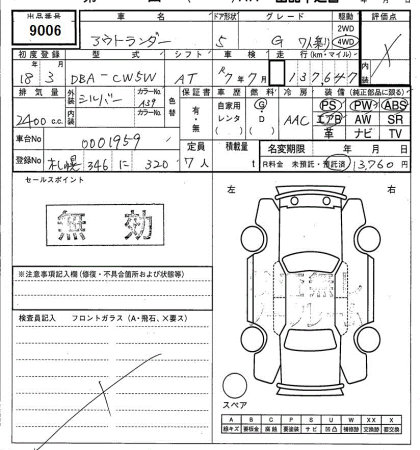 出品番号 車名 ドア形状 グレード 駆動 評価点
9006 アウトランダー 5 G 7人乗り 2WD 4WD
初度登録 型式 シフト 車検 走行(km・マイル) 内
18年 3月 DBA-CW5W AT R7年7月 137,647
排気量 外装 シルバー カラーNo. A39 色替 保証書 車歴 燃料 冷房 装備(純正部品に限る)
2400 c.c. 内装 カラーNo. 有・無 自家用 レンタ G・D AAC PS PW ABS
エアB AW SR
革 ナビ TV
車台No 0001959 定員 積載量 名変期限 年 月 日
登録No 札幌 346 に 320 7人 t R料金 未預託・預託済 13,760円
セールスポイント 左 右
無効
※注意事項記入欄(修復・不具合箇所および状態等)
検査員記入 フロントガラス(A・飛石、×要ス)
スペア
A B C P S U W X XX
線キズ 要板金 腐蝕 要塗装 サビ 凹凸 補修跡 要交換